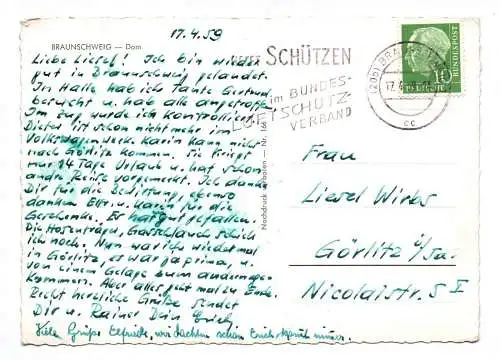 17.4.59
BRAUNSCHWEIG — Dom
Liebe Liesel! Ich bin wieder
gut in Braunschweig gelandet.
In Halle hab ich Tante Gertrud
besucht u. hab alle angetroffen.
Im Zug wurde ich kontrolliert.
Dieter ist schon nicht mehr im
Volkswagenwerk. Karin kann nicht
nach Görlitz kommen. Sie kriegt
nur 14 Tage Urlaub u. hat schon
andre Reise vorgemerkt. Ich danke
Dir für die Bewirtung, ebenso
danken Elfr. u. Karin für die
Geschenke. Es hat gut gefallen.
Die Hosenträger, Gasschlauch schick
ich noch. Nun war ich wiedermal
in Görlitz, es war ja prima, u.
von einem Gelage zum anderen
kommen. Aber alles geht mal zu Ende.
Recht herzliche Grüße sendet
Dir u. Rainer Dein Erich
Viele Grüße Elfriede, wir dachten schon
Nachdruck verboten — Nr. 166
SCHÜTZEN
im BUNDES-
LUFTSCHUTZ-
VERBAND
(20b) BRAUNSCHWEIG
cc
10
DEUTSCHE BUNDESPOST
Frau
Liesel Wirbs
Görlitz i/Sa.
Nicolaistr. 5 I